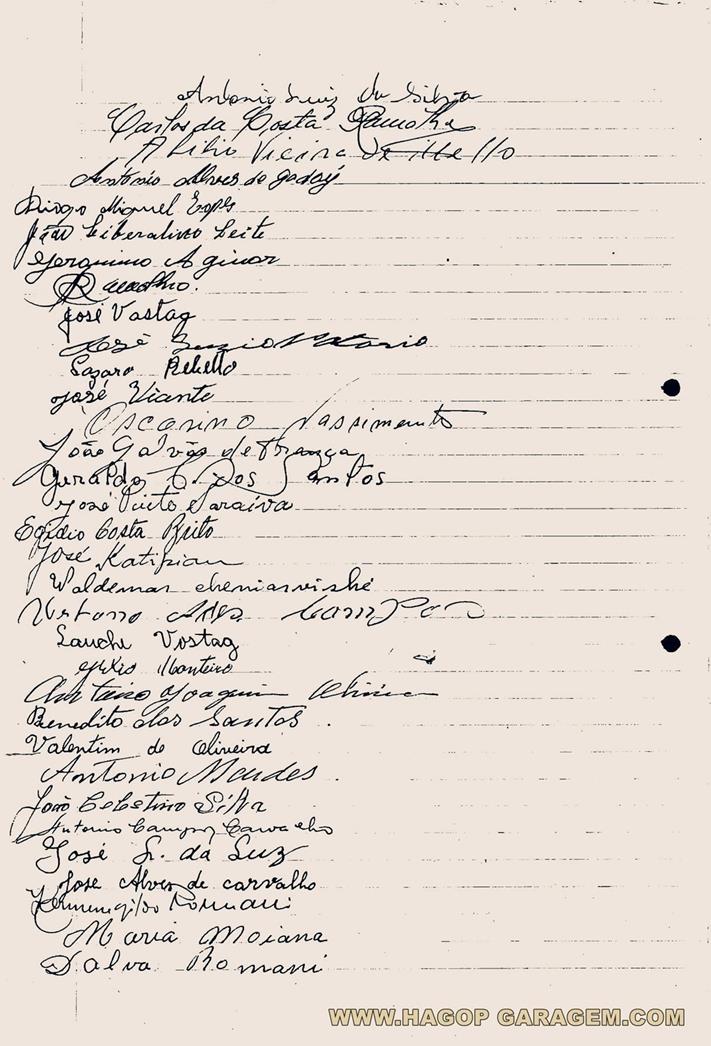 Antonio Luiz da Silva
Carlos da Costa Ramalho
Abilio Vieira de Mello
Antonio Alves de godoy
Diogo Miguel Lopes
João Liberalino Leite
Geronimo Aginor
Ramalho.
José Vastag
José
Lazaro Rebello
José Viante
Oscarino Nassimento
João Galvão de França
Geraldo C. Dos Santos
José Pinto Saraiva
Egidio Costa Brito
José Katipian
Waldemar
Campos
Vostag
Monteiro
Antonio Joaquim
Benedito dos Santos.
Valentim de Oliveira
Antonio Mendes.
João Celestino Silva
Antonio Campos Carvalho
José Sr. da Luz
Jose Alves de carvalho
Hermenegildo Romani
Maria Moiana
Dalva Romani
WWW.HAGOP GARAGEM.COM